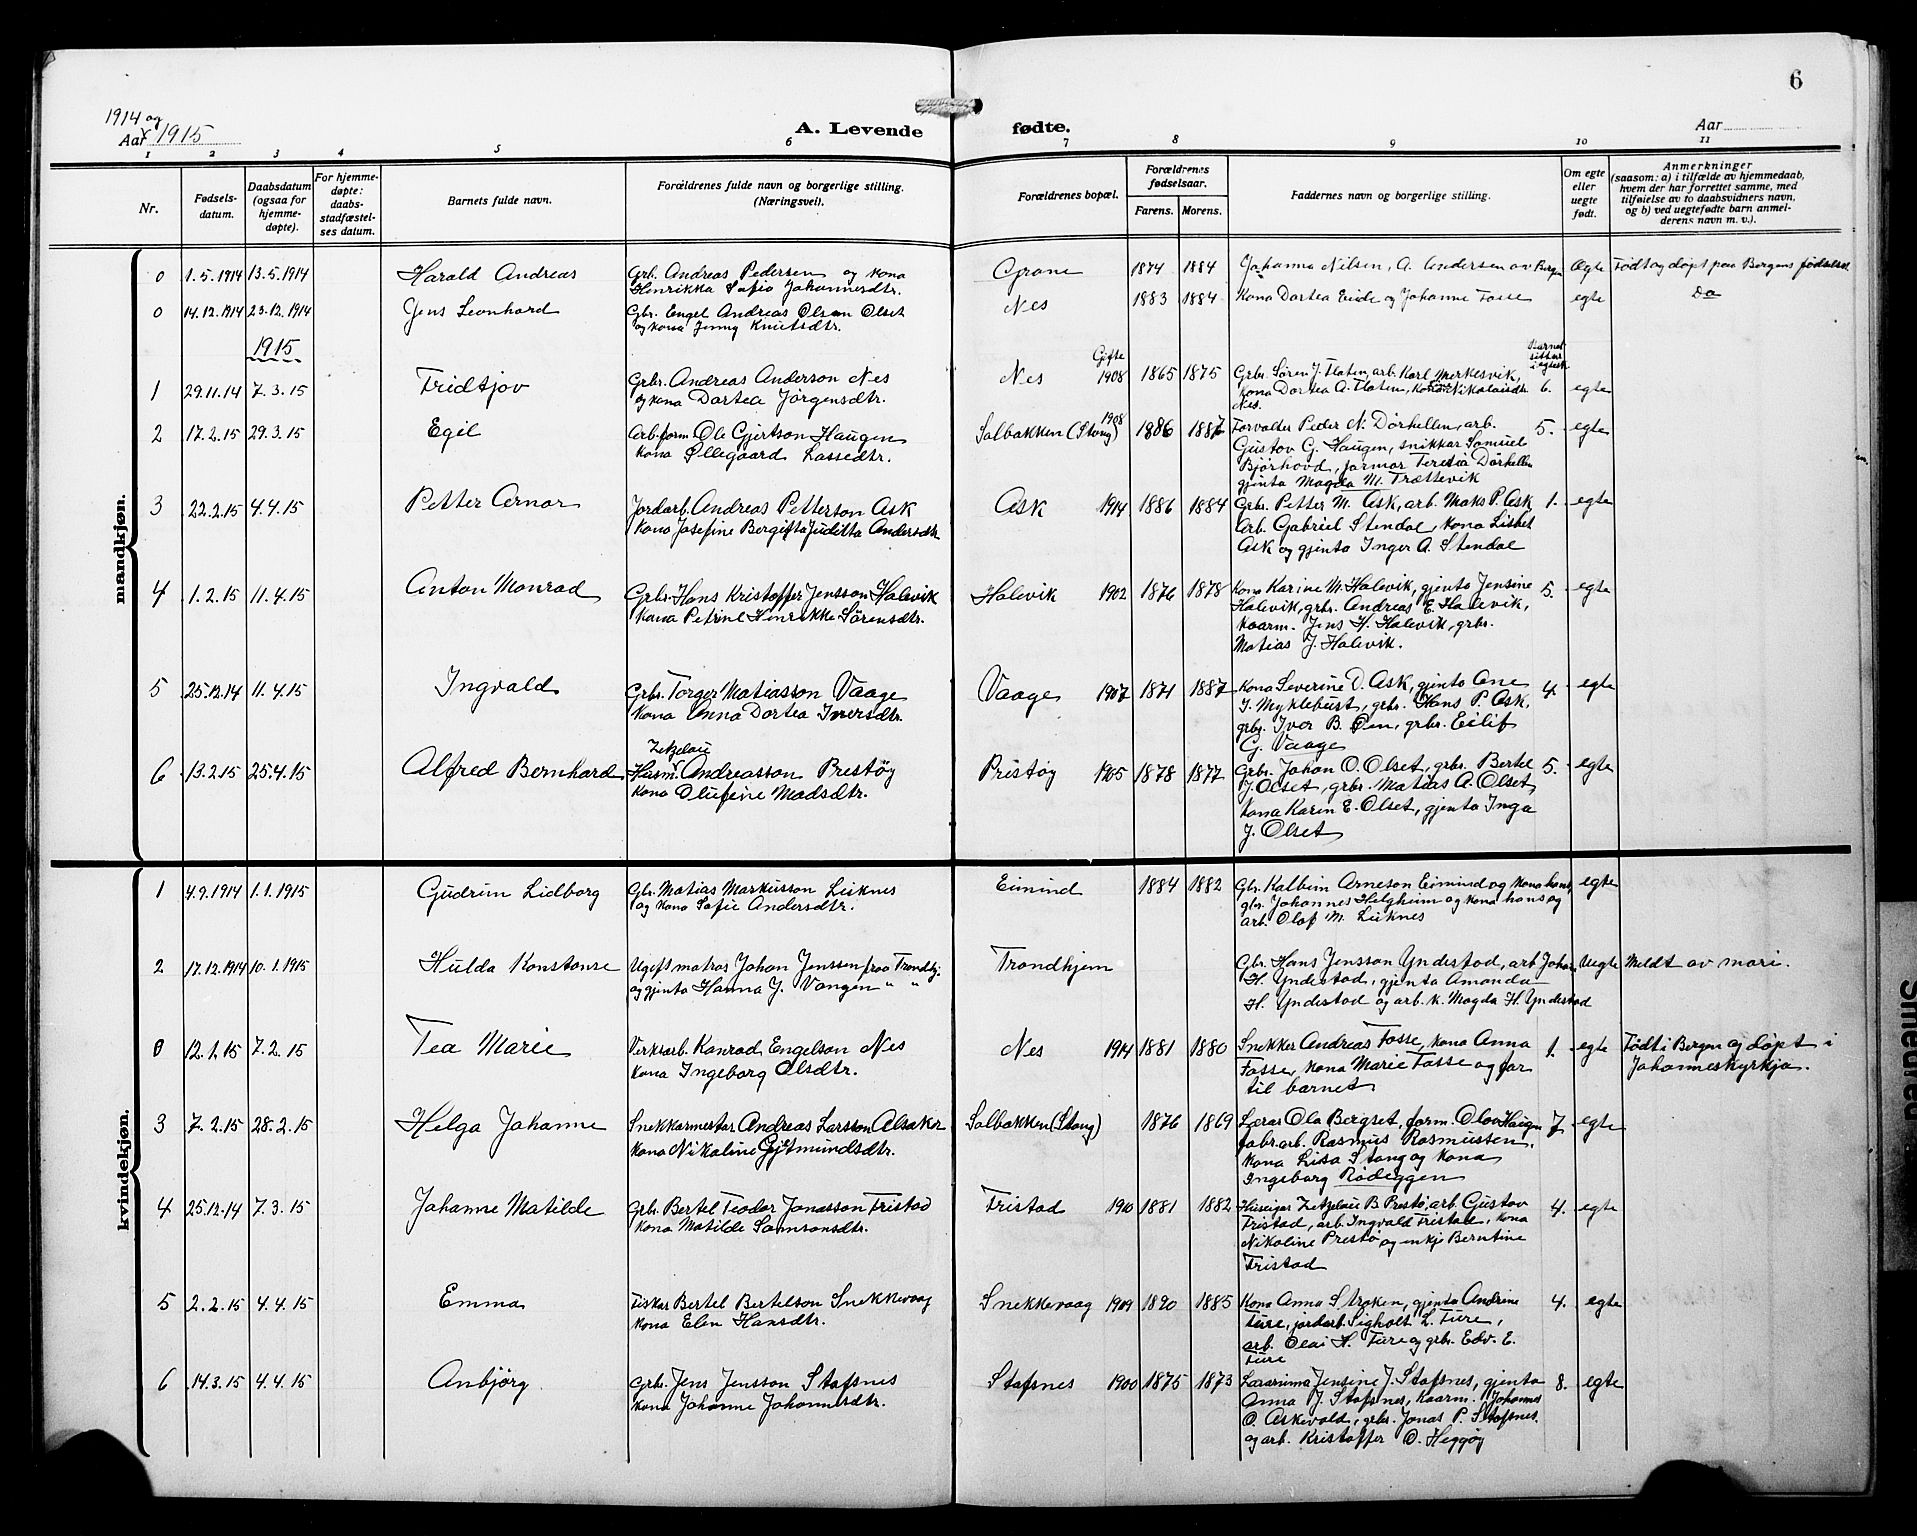 6
1914 og
Aar 1915
A. Levende fødte.
Aar
1 2 3 4 5 6 7 8 9 10 11
Nr.
Fødsels-datum.
Daabsdatum (ogsaa for hjemme-døpte).
For hjemme-døpte: daabs-stadfæstel-ses datum.
Barnets fulde navn.
Forældrenes fulde navn og borgerlige stilling. (Næringsvei).
Forældrenes bopæl.
Forældrenes fødselsaar.
Farens. Morens.
Faddernes navn og borgerlige stilling.
Om egte eller uegte født.
Anmerkninger
(saasom: a) i tilfælde av hjemmedaab,
hvem der har forrettet samme, med
tilføielse av to daabsvidners navn,
og b) ved uegtefødte barn anmel-
derens navn m. v.).
mandkjøn.
0 1.5.1914 13.5.1914 Harald Andreas Grb. Andreas Pedersen og kona Grone 1874 1884 Johanna Nilsen, A. Andersen av Bergen Egte Født og døpt paa Bergens fødselsst
Henrikka Sofie Johannesdtr.
0 14.12.1914 23.12.1914 Jens Leonhard Gbr. Engel Andreas Olsen Olset Nes 1883 1884 Kona Dortea Eide og Johanne Fosse egte Do
og kona Jenny Knutsdtr.
1915
Gifte
1 29.11.14 7.3.15 Fridtjov Grbr. Andreas Anderson Nes Nes 1908 1865 1875 Grbr. Søren J. Floten, arb. Karl Myrkesvik, 6. egte
og kona Dortea Jörgensdtr. kona Dortea A. Floten, kona Nikolaisdtr
Nes.
2 17.2.15 29.3.15 Egil Arb.form. Ole Gjertson Haugen Solbakken (Stong) 1908 1886 1887 Forvalter Peder N. Dörhellen, arb. 5. egte
kona Øllegaard Lassedtr. Gustov G. Haugen, snikkar Samuel
Bjørhovd, jormor Teresia Dörhellen
gjenta Magda M. Trættevik
3 22.2.15 4.4.15 Petter Arnor Jordarb. Andreas Petterson Ask Ask 1914 1886 1884 Grbr. Petter M. Ask, arb. Maks P. Ask 1. egte
kona Josefine Bergitta Juditta Andersdtr Arb. Gabriel Stendal, kona Lisbet
Ask og gjenta Inger A. Stendal
4 1.2.15 11.4.15 Anton Monrad Grbr. Hans Kristoffer Jensson Halevik Halevik 1902 1876 1878 Kona Karine M. Halevik, gjenta Jensine 5. egte
kona Petrine Henrikke Sörensdtr. Halevik, grbr. Andreas E. Halevik,
kaarm. Jens H. Halevik, grbr.
Matias J. Halevik.
5 25.12.14 11.4.15 Ingvald Grbr. Torger Matiasson Vaage Vaage 1907 1871 1887 Kona Severine D. Ask, gjenta Ane 4. egte
kona Anna Dortea Iversdtr. I. Myklebust, grbr. Hans P. Ask,
grbr. Iver B. Øen, grbr. Eilif
G. Vaage
Zetzelaü
6 13.2.15 25.4.15 Alfred Bernhard Husm. Andreasson Prestöy Pristöy 1905 1878 1877 Grbr. Johan O. Olset, grbr. Bertel 5. egte
kona Olufine Madsdtr. J. Olset, grbr. Matias A. Olset,
kona Karen E. Olset, gjenta Inga
J. Olset
kvindekjøn.
1 4.9.1914 1.1.1915 Gudrun Lidborg Gbr. Matias Markusson Liknes Eimind 1884 1882 Gbr. Kalbein Arneson Eimind og kona hans, egte
og kona Sofie Andersdtr. gbr. Johannes Helgheim og kona hans og
arb. Olaf M. Liknes
2 17.12.1914 10.1.1915 Hulda Konstanse Ugift matros Johan Jenssen fraa Trondhj. Trondhjem Gbr. Hans Jensson Yndestad, arb Johan Uegte Meldt av mori.
og gjenta Hanna J. Vangen " " H. Yndestad, gjenta Amanda
H. Yndestad og arb. k. Magda H. Yndestad
0 12.1.15 7.2.15 Tea Marie Verksarb. Konrad Engelson Nes Nes 1914 1881 1880 Snekker Andreas Fosse, kona Anna 1. egte Født i Bergen og døpt i
kona Ingeborg Olsdtr. Fosse, kona Marie Fosse og far Johanneskyrkja.
til barnet
3 7.2.15 28.2.15 Helga Johanne Snekkarmestar Andreas Larsson Alsaker Solbakken (Stong) 1876 1869 Lærar Ola Bergset, form. Olav Haugen 7 egte
kona Nikoline Gjetmundsdtr. fabr.arb. Rasmus Rasmussen,
kona Lisa Stong og kona
Ingeborg Rödeggen
4 25.12.14 7.3.15 Johanne Matilde Grbr. Bertel Teodor Jonasson Tristad Tristad 1910 1881 1882 Huseigar Zetzelaü B. Prestö, arb. Gustav 4. egte
kona Matilde Samsonsdtr. Tristad, arb. Ingvald Tristad, kona
Nikoline Prestö og enkje Berntine
Tristad
5 2.2.15 4.4.15 Emma Fiskar Bertel Bertelson Snekkevaag Snekkevaag 1909 1890 1885 Kona Anna Stroken, gjenta Andrine 4. egte
kona Elen Hansdtr. Ture, jordarb. Sigholt L. Ture,
arb. Olai H. Ture og grbr. Edv. E.
Ture
6 14.3.15 4.4.15 Anbjörg Grbr. Jens Jensson Stafsnes Stafsnes 1900 1875 1873 Lærarinna Jensine J. Stafsnes, gjenta 8. egte
kona Johanne Johannesdtr. Anna J. Stafsnes, Kaarm. Johannes
O. Askevold, grbr. Jonas P. Stafsnes
og arb. Kristoffer O. Heggöy